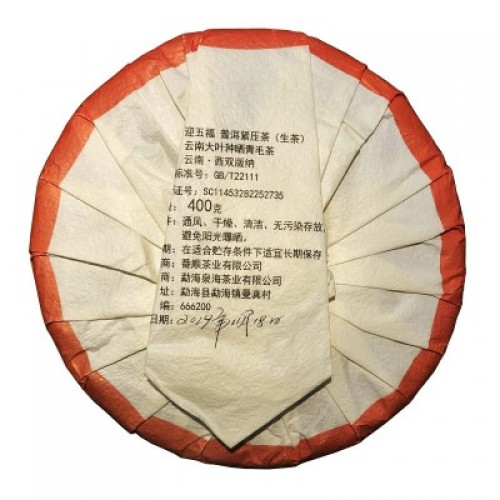 迎五福 普洱紧压茶（生茶）
云南大叶种晒青毛茶
云南·西双版纳
标准号：GB/T22111
证号：SC11453282252735
：400克
件：通风、干燥、清洁、无污染存放，
避免阳光曝晒。
期：在适合贮存条件下适宜长期保存
商：番顺茶业有限公司
商：勐海泉海茶业有限公司
：勐海县勐海镇曼真村
编：666200
日期：2019年11月18日